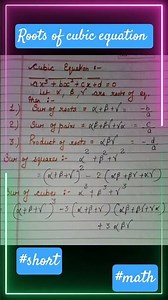 Roots of cubic equation
Cubic Equation :-
ax³ + bx² + cx + d = 0
Let α, β, γ are roots of eq.
then :-
1) Sum of roots = α+β+γ = -b/a
2) Sum of pairs = αβ+βγ+γα = c/a
3) Product of roots = αβγ = -d/a
Sum of squares :- α² + β² + γ²
= (α+β+γ)² - 2(αβ+βγ+αγ)
Sum of cubes :- α³ + β³ + γ³
(α+β+γ)³ - 3(α+β+γ)(αβ+βγ+γα)
+ 3αβγ
#short
#math